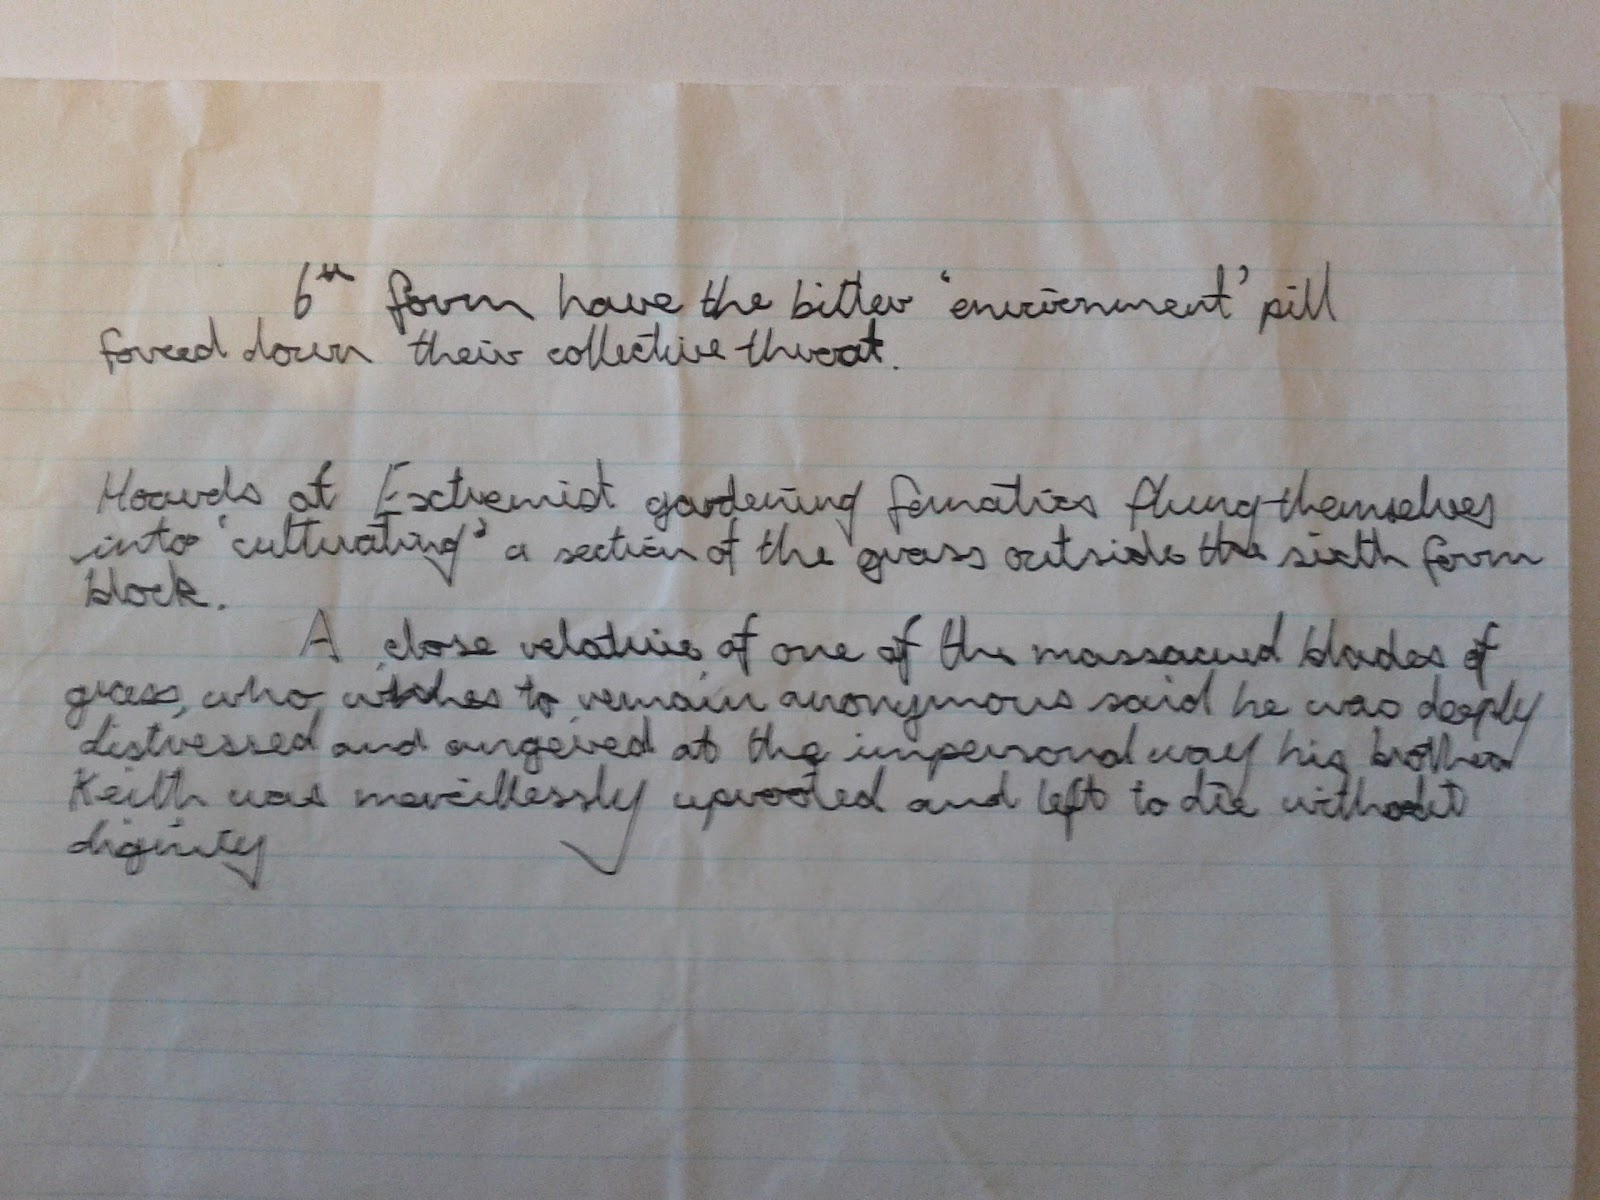 6th form have the bitter 'enviornment' pill
forced down their collective throat.
Hoards of Extremist gardening fanatics flung themselves
into 'cultivating' a section of the grass outside the sixth form
block.
A close relative of one of the massacred blades of
grass, who wishes to remain anonymous said he was deeply
distressed and angered at the impersonal way his brother
Keith was mercillessly uprooted and left to die without
diginity